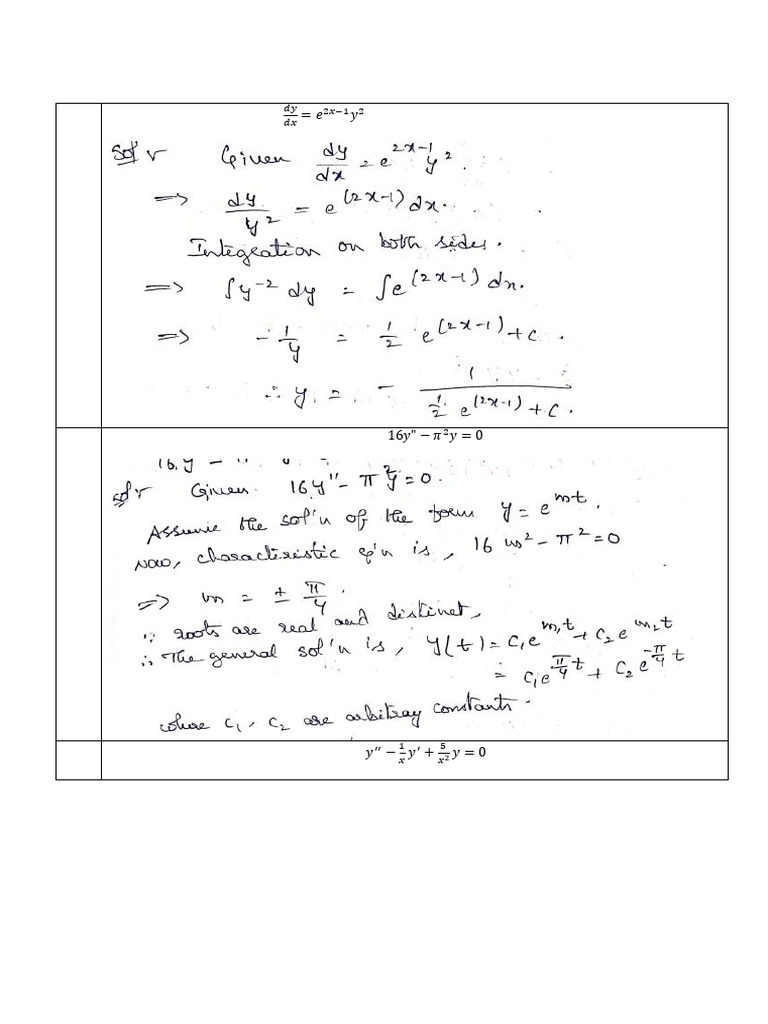 dy/dx = e^{2x−1}y²
Sol'n Given dy/dx = e^{2x-1} y².
=> dy/y² = e^{(2x-1)} dx.
Integration on both sides.
=> ∫y^{-2} dy = ∫e^{(2x-1)} dx.
=> -1/y = 1/2 e^{(2x-1)} + c.
∴ y = - 1/(1/2 e^{(2x-1)} + c).
16y″ − π²y = 0
16y −
Sol'n Given 16y″ - π²y = 0.
Assume the sol'n of the form y = e^{mt}.
Now, characteristic eq'n is, 16 m² - π² = 0
=> m = ± π/4.
∵ roots are real and distinct,
∴ The general sol'n is, y(t) = c₁e^{m₁t} + c₂e^{m₂t}
= c₁e^{π/4 t} + c₂e^{-π/4 t}
where c₁, c₂ are arbitray constants.
y″ − 1/x y′ + 5/x² y = 0